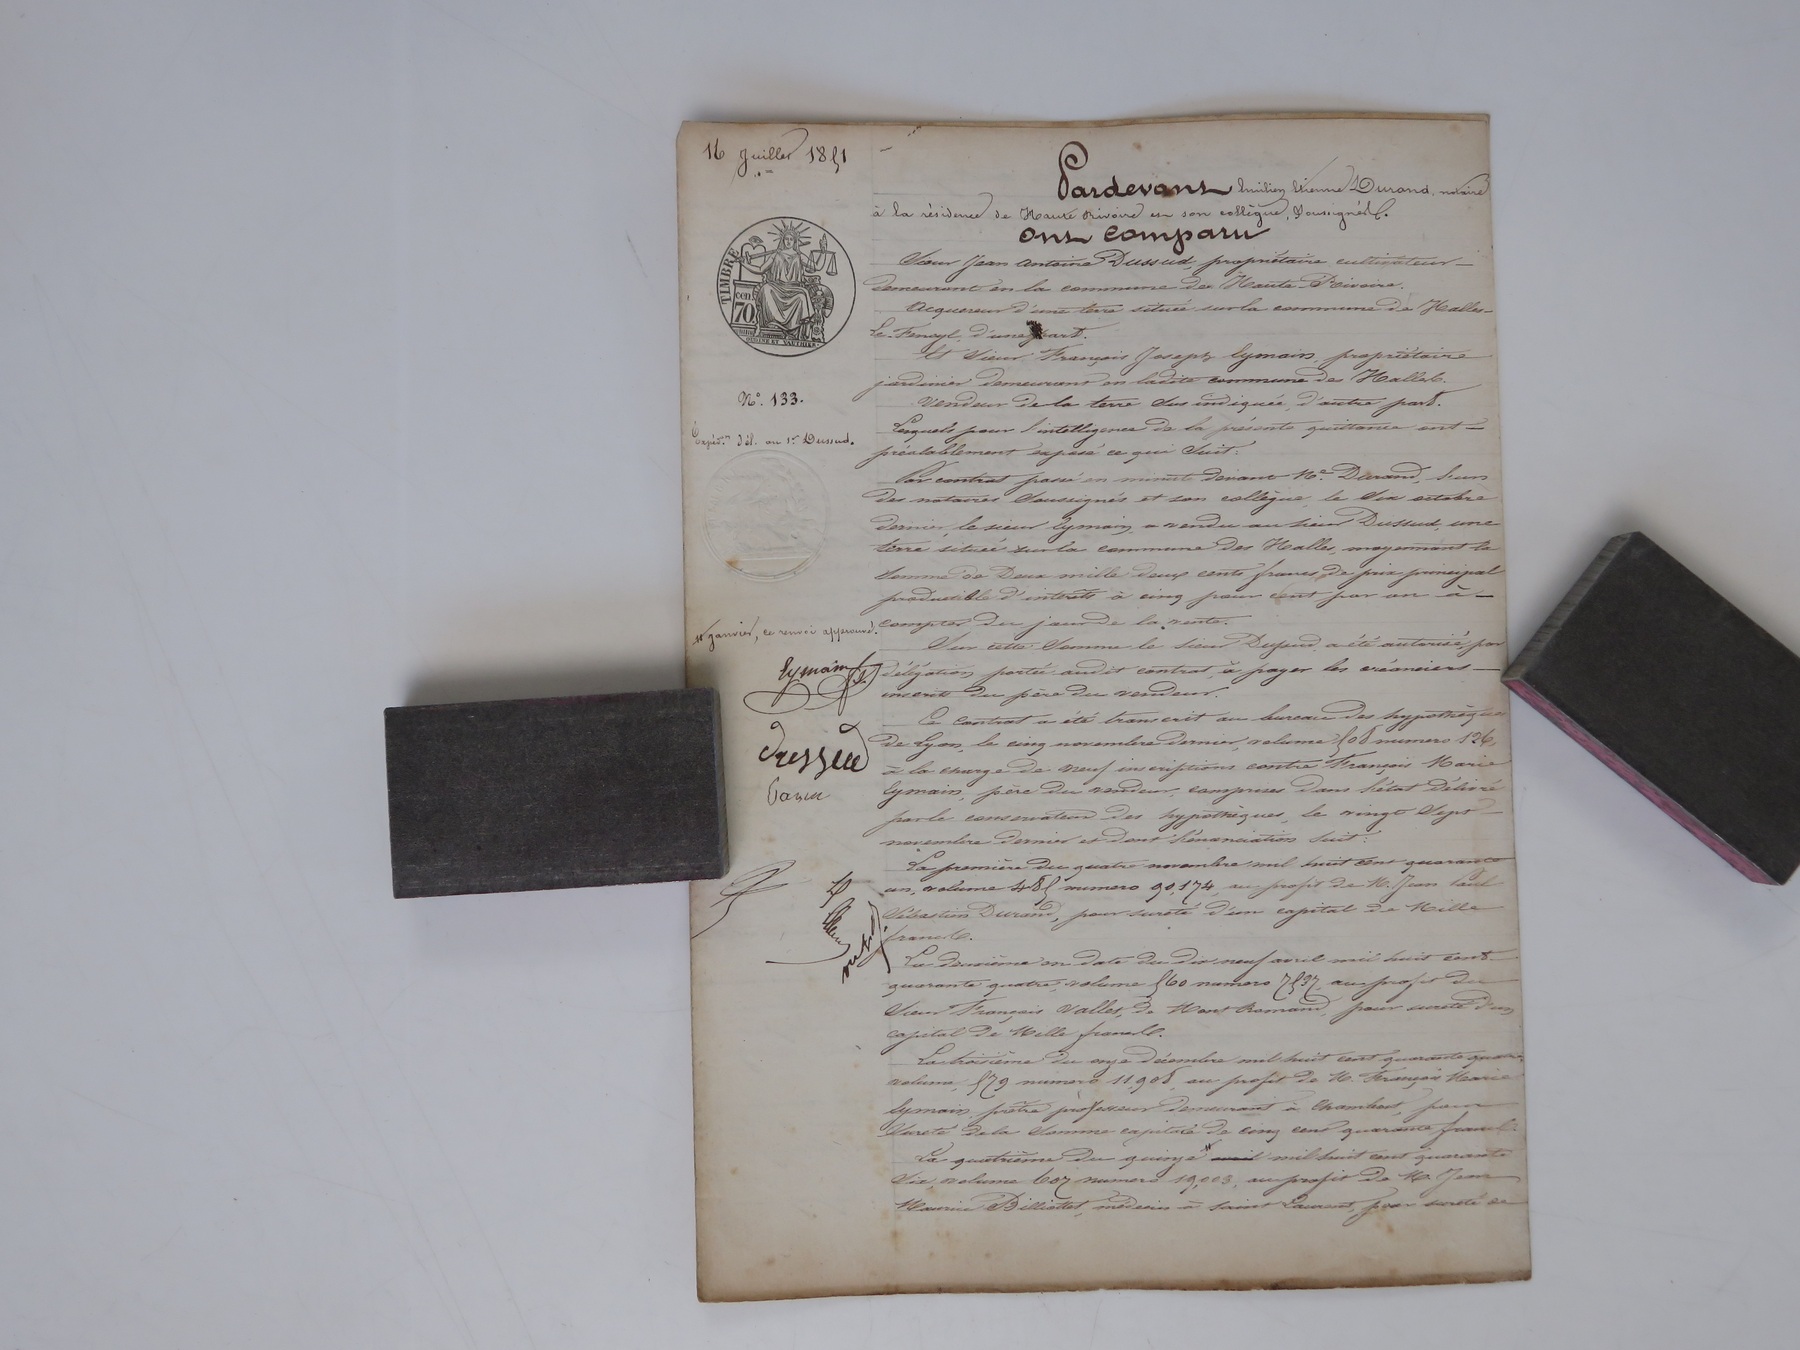 16 Juillet 1851
Pardevant Emilien Etienne Durand, notaire
à la résidence de Haute Rivoire et son collègue, Soussignés.
ont comparu
Sieur Jean Antoine Dussud, propriétaire cultivateur
demeurant en la commune de Haute-Rivoire.
Acquereur d'une terre située sur la commune de Halles-
Le-Fenoyl, d'une part.
Et Sieur François Joseph Eymain, propriétaire
jardinier demeurant en ladite commune des Halles.
Vendeur de la terre sus indiquée, d'autre part.
Lesquels pour l'intelligence de la présente quittance ont
préalablement exposé ce qui suit:
Par contrat passé en minute devant Me. Durand, l'un
des notaires Soussignés et son collègue, le Six octobre
dernier, le sieur Eymain a vendu au sieur Dussud, une
terre située sur la commune des Halles, moyennant la
somme de Deux mille deux cents francs de prix principal
productible d'intérêts à cinq pour cent par an à
compter du jour de la vente.
Sur cette somme le sieur Dussud a été autorisé, par
délégation portée audit contrat, à payer les créanciers
inscrits du père du vendeur.
Ce contrat a été transcrit au bureau des hypothèques
de Lyon, le cinq novembre dernier, volume 508 numero 126,
à la charge de neuf inscriptions contre François Marie
Eymain, père du vendeur, comprises dans l'état délivré
par le conservateur des hypothèques, le vingt Sept
novembre dernier et dont l'énonciation suit:
La première du quatre novembre mil huit cent quarante
un, volume 485 numero 90,174, au profit de M. Jean Paul
Sébastien Durand, pour sureté d'un capital de Mille
francs.
La deuxième en date du dix neuf avril mil huit cent
quarante quatre, volume 560 numero 7537, au profit du
Sieur François Valles, de Mont Romand, pour sureté d'un
capital de Mille francs.
La troisième du onze décembre mil huit cent quarante quatre
volume, 579 numero 11,908, au profit de M. François Marie
Eymain, prêtre professeur demeurant à Chambost, pour
Sureté de la Somme capitale de cinq cent quarante francs.
La quatrième du quinze mil huit cent quarante
Six, volume 607 numero 19,003, au profit de M. Jean
Maurice Billiottet, médecin à Saint Laurent, pour sureté de
TIMBRE
cen
70
No. 133.
Expéd.on dél. au Sr Dussud.
janvier, ce renvoi approuvé.
Eymain
Dussud